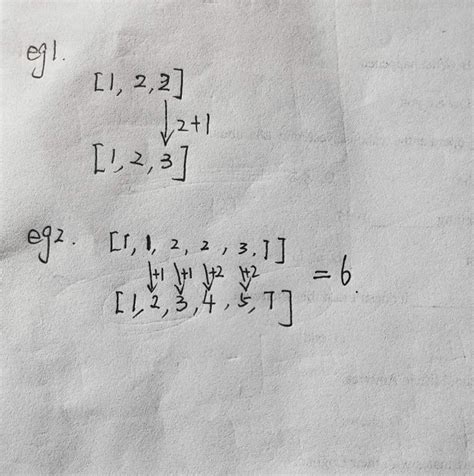 eg1.
[1, 2, 2]
↓ 2+1
[1, 2, 3]
eg2. [1, 1, 2, 2, 3, 7]
↓+1 ↓+1 ↓+2 ↓+2 = 6.
[1, 2, 3, 4, 5, 7]